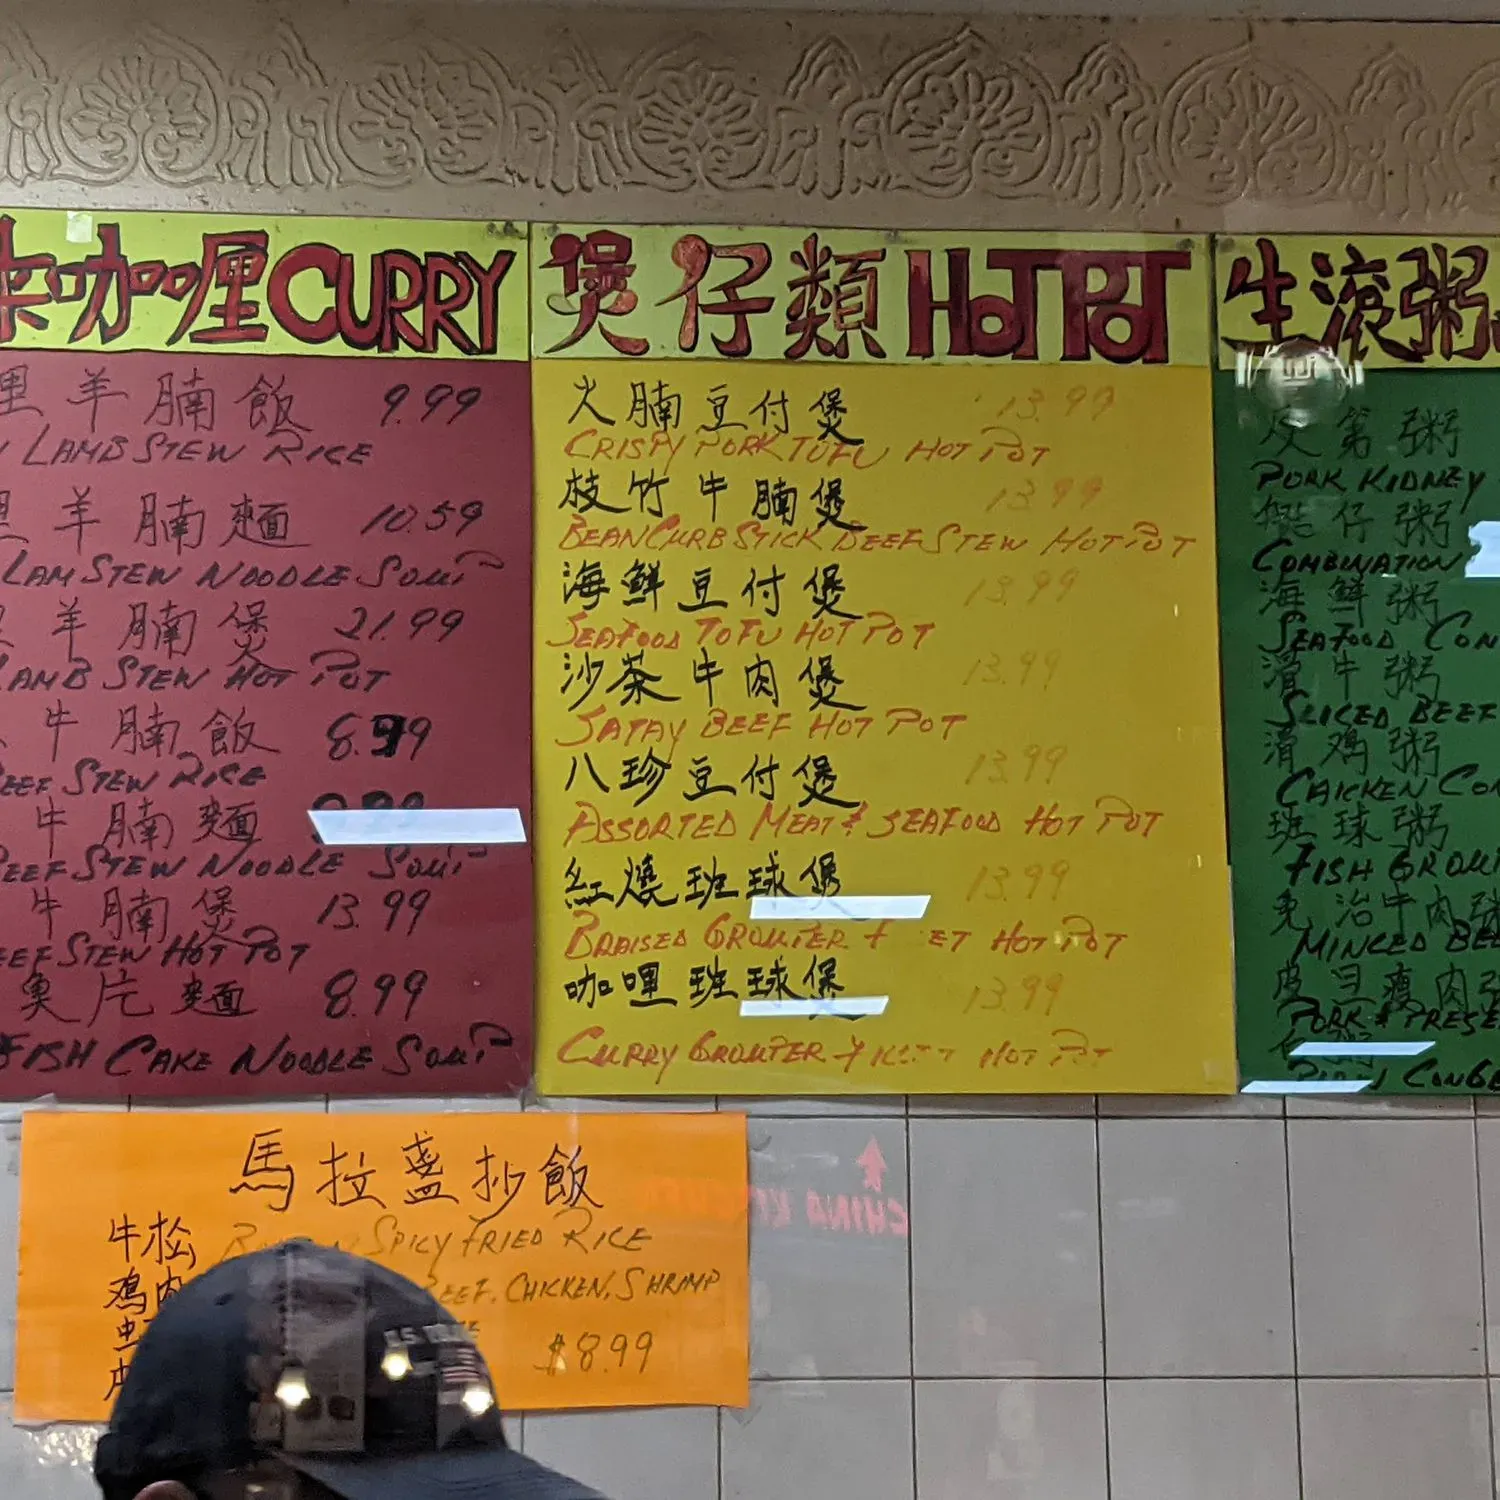 咖喱 CURRY
羊腩飯 9.99
LAMB STEW RICE
羊腩麵 10.59
LAM STEW NOODLE SOUP
羊腩煲 21.99
LAMB STEW HOT POT
牛腩飯 8.99
BEEF STEW RICE
牛腩麵
BEEF STEW NOODLE SOUP
牛腩煲 13.99
BEEF STEW HOT POT
魚片麵 8.99
FISH CAKE NOODLE SOUP
煲仔類 HOT POT
火腩豆付煲 13.99
CRISPY PORK TOFU HOT POT
枝竹牛腩煲 13.99
BEAN CURB STICK BEEF STEW HOT POT
海鮮豆付煲 13.99
SEAFOOD TOFU HOT POT
沙茶牛肉煲 13.99
SATAY BEEF HOT POT
八珍豆付煲 13.99
ASSORTED MEAT & SEAFOOD HOT POT
紅燒班球煲 13.99
BRAISED GROUPER HOT POT
咖喱班球煲 13.99
CURRY GROUPER HOT POT
生滾粥
粥
PORK KIDNEY
艇仔粥
COMBINATION
海鮮粥
SEAFOOD CON
滑牛粥
SLICED BEEF
滑鸡粥
CHICKEN CO
班球粥
FISH GROU
治牛肉粥
MINCED BE
皮旦瘦肉
PORK & PRESE
CONGE
馬拉盞抄飯
SPICY FRIED RICE
牛松
鸡肉
BEEF, CHICKEN, SHRIMP
$8.99
CHINA